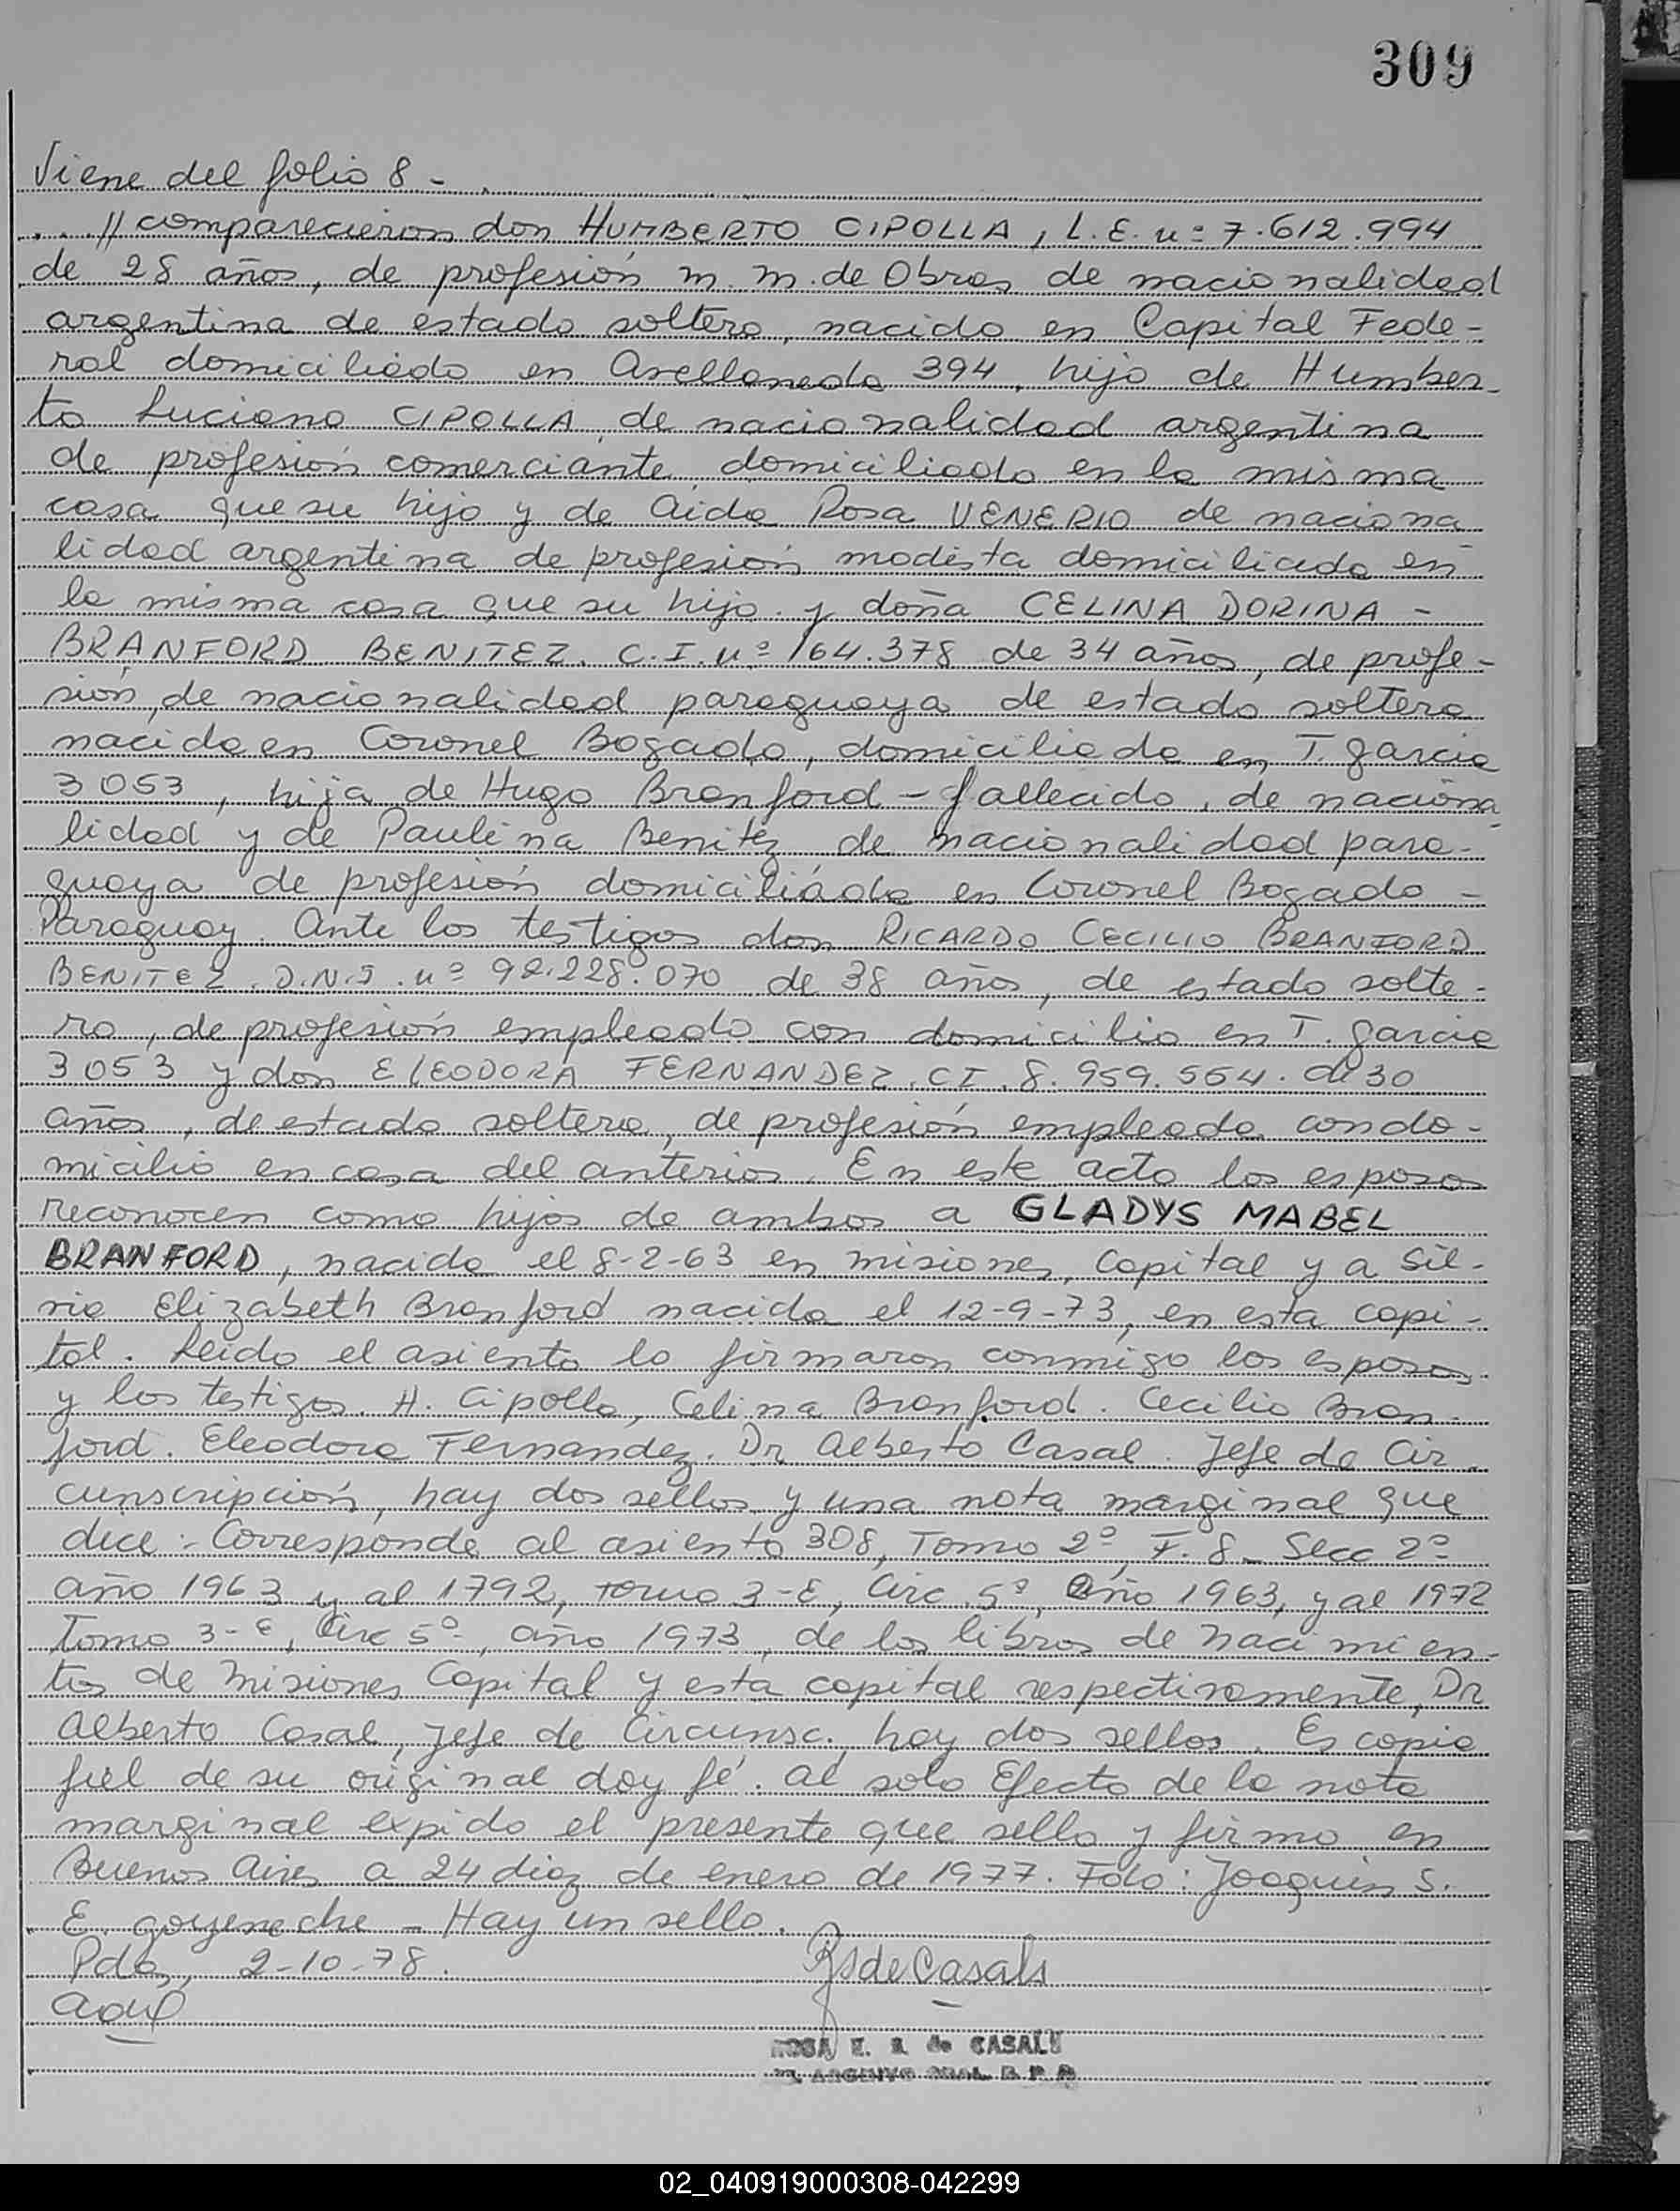 309
Viene del folio 8 -
...// comparecieron don HUMBERTO CIPOLLA, L.E. nº 7.612.994
de 28 años, de profesión m. m. de Obras de nacionalidad
argentina de estado soltero, nacido en Capital Fede-
ral domiciliado en Avellaneda 394, hijo de Humber-
to Luciano CIPOLLA, de nacionalidad argentina
de profesión comerciante, domiciliado en la misma
casa que su hijo y de Aida Rosa VENERIO de naciona
lidad argentina de profesión modista domiciliada en
la misma casa que su hijo y doña CELINA DORINA -
BRANFORD BENITEZ. C.I. nº 164.378 de 34 años, de profe-
sión, de nacionalidad paraguaya de estado soltera
nacida en Coronel Bogado, domiciliada en T. Garcia
3053, hija de Hugo Branford - fallecido, de naciona
lidad y de Paulina Benitez de nacionalidad para-
guaya de profesión domiciliada en Coronel Bogado -
Paraguay. Ante los testigos don RICARDO CECILIO BRANFORD
BENITEZ. D.N.I. nº 92.228.070 de 38 años, de estado solte-
ro, de profesión empleado con domicilio en T. Garcia
3053 y don ELEODORA FERNANDEZ. CI. 8.959.554. de 30
años, de estado soltera, de profesión empleada con do-
micilio en casa del anterior. En este acto los esposos
reconocen como hijos de ambos a GLADYS MABEL
BRANFORD, nacida el 8-2-63 en misiones, Capital y a Sil-
via Elizabeth Branford nacida el 12-9-73, en esta capi-
tal. Leido el asiento lo firmaron conmigo los esposos
y los testigos. H. Cipolla, Celina Branford. Cecilio Bran-
ford. Eleodora Fernandez. Dr Alberto Casal. Jefe de Cir
cunscripción, hay dos sellos y una nota marginal que
dice: Corresponde al asiento 308, Tomo 2º, F. 8 - Secc 2º
año 1963 y al 1792, tomo 3-E, Circ. 5º, año 1963, y al 1972
Tomo 3-E, Circ 5º, año 1973, de los libros de nacimien-
tos de misiones Capital y esta capital respectivamente, Dr
Alberto Casal, Jefe de Circunsc., hay dos sellos. Es copia
fiel de su original doy fé. Al solo Efecto de la nota
marginal expido el presente que sello y firmo en
Buenos Aires a 24 diaz de enero de 1977. Fdo: Joaquin S.
E. goyeneche - Hay un sello.
Pdas, 2-10-78.
RS de Casals
ROSA E. S. de CASALS
02_040919000308-042299